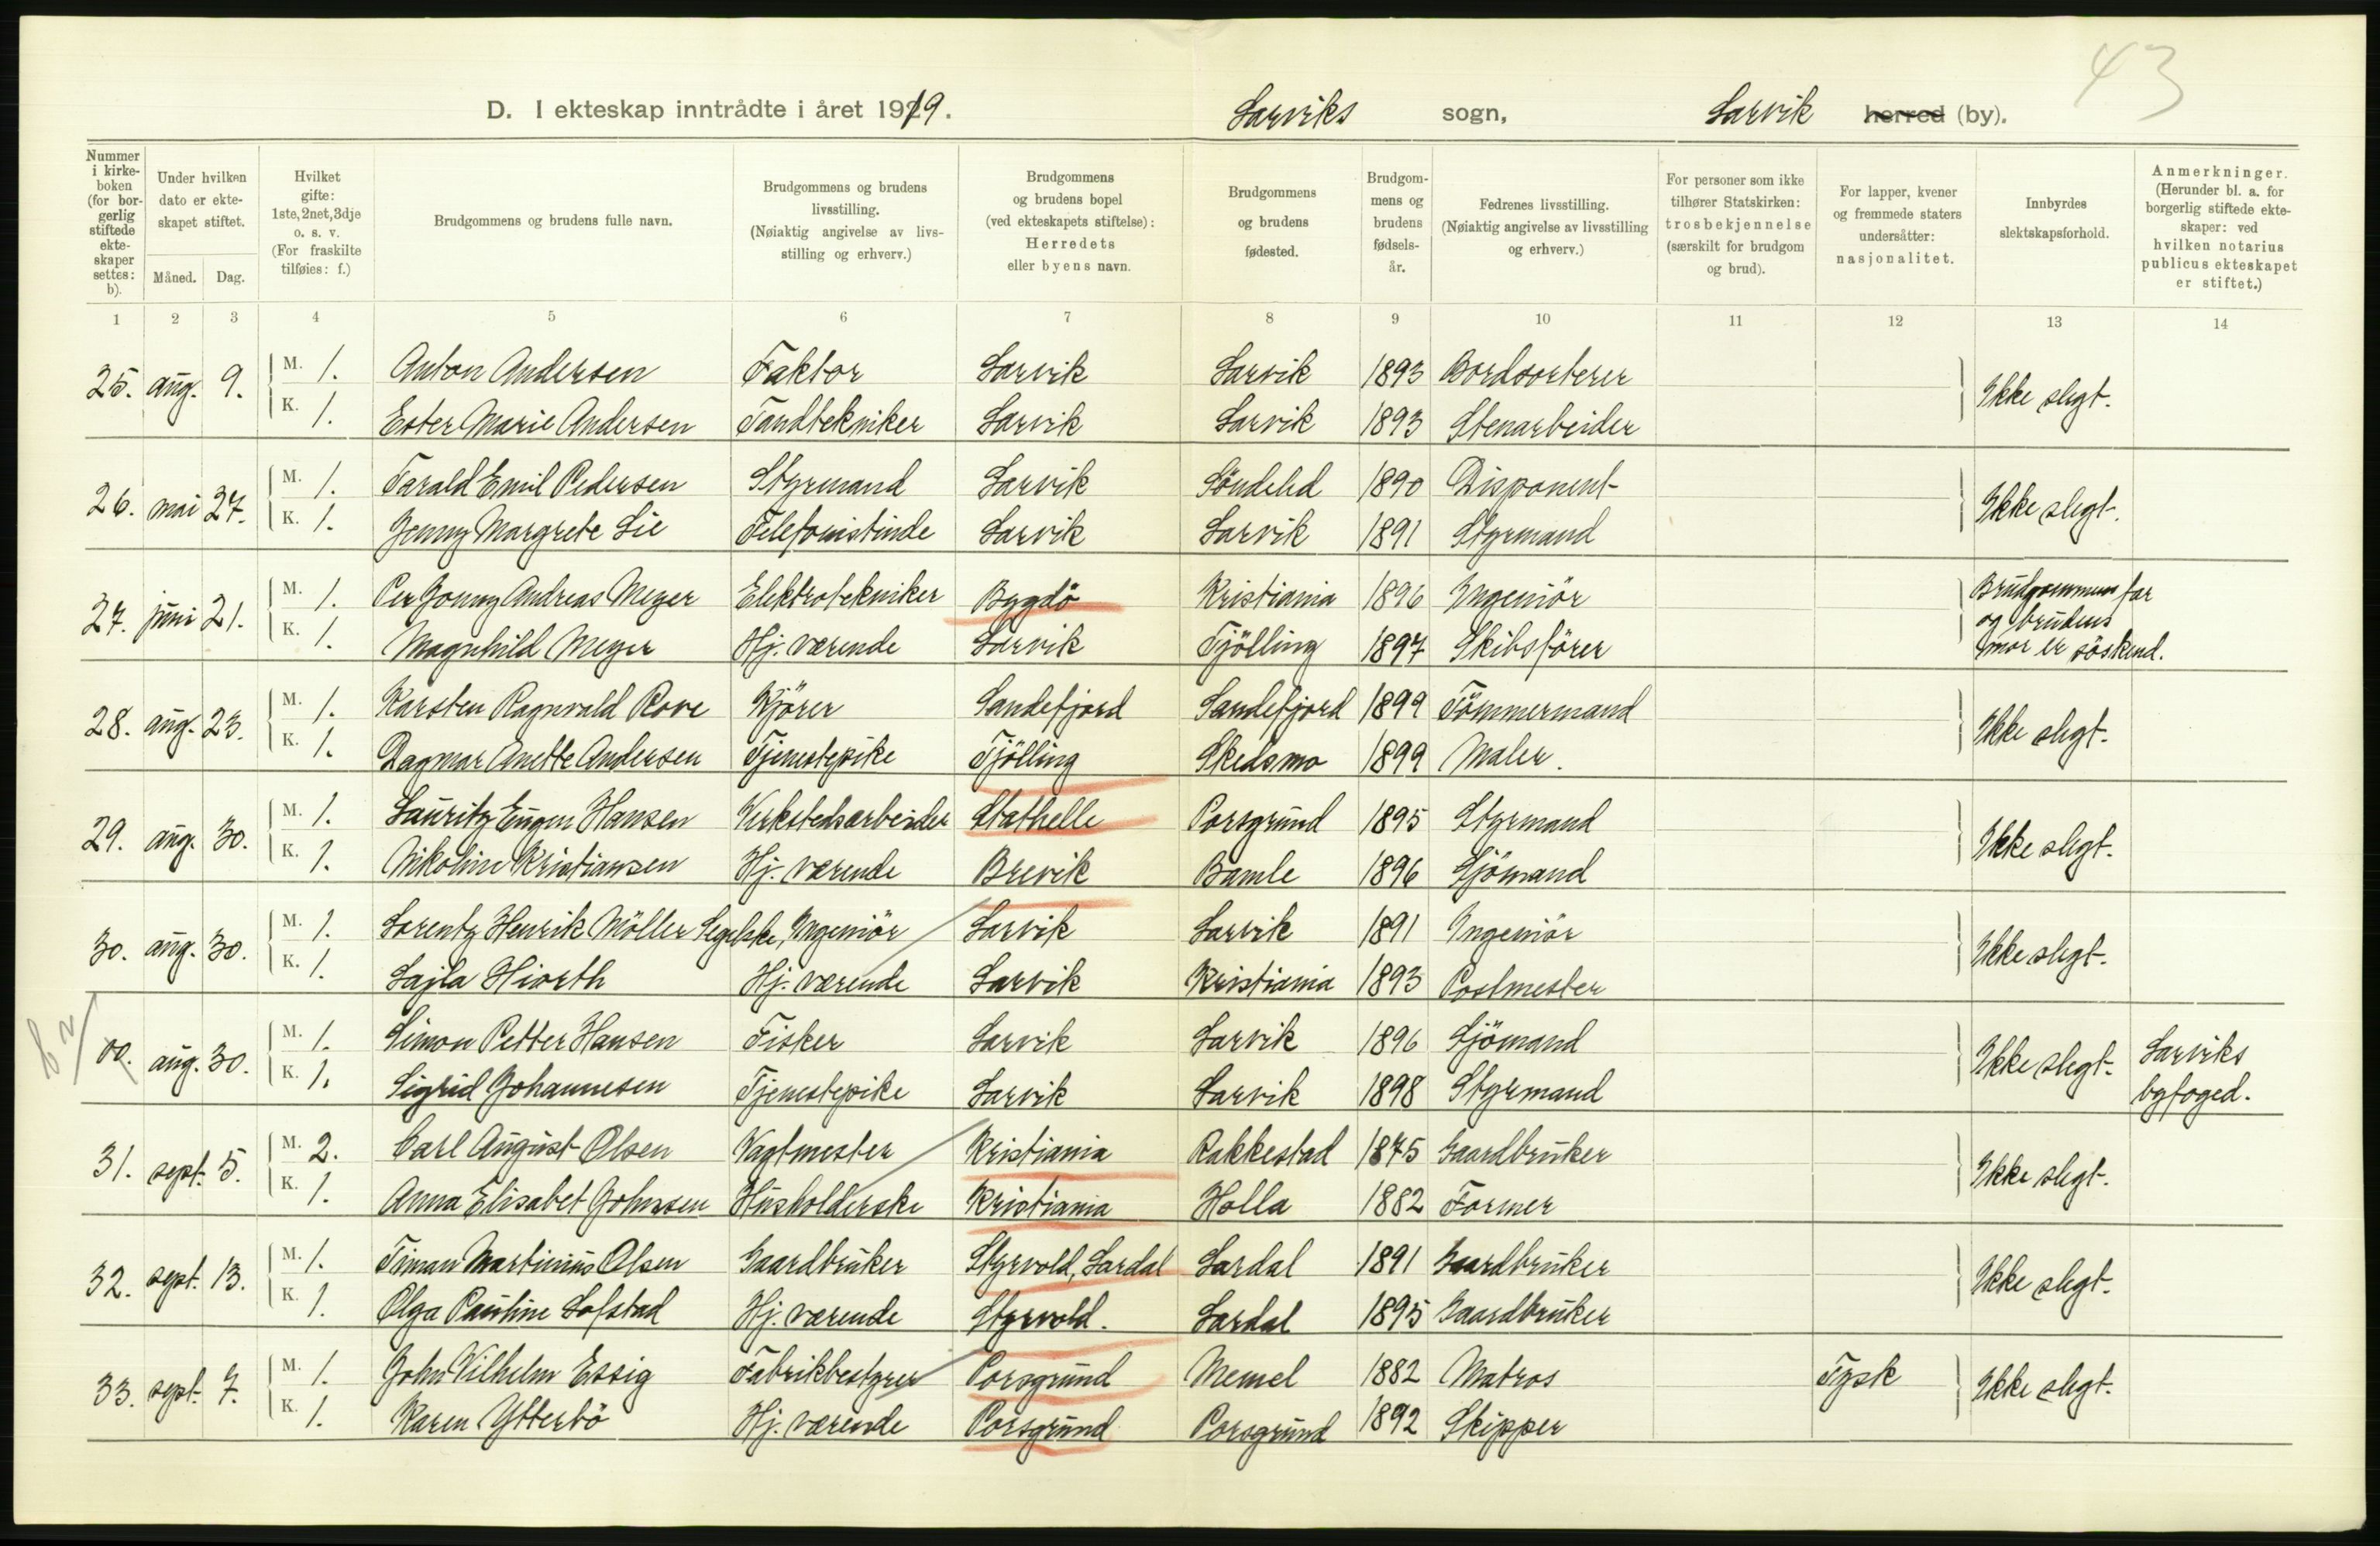 43
D. I ekteskap inntrådte i året 1919. Larviks sogn, Larvik herred (by).
Nummer i kirkeboken (for borgerlig stiftede ekteskaper settes: b).
Under hvilken dato er ekteskapet stiftet.
Måned. Dag.
Hvilket gifte: 1ste, 2net, 3dje o. s. v. (For fraskilte tilføies: f.)
Brudgommens og brudens fulle navn.
Brudgommens og brudens livsstilling. (Nøiaktig angivelse av livsstilling og erhverv.)
Brudgommens og brudens bopel (ved ekteskapets stiftelse): Herredets eller byens navn.
Brudgommens og brudens fødested.
Brudgommens og brudens fødselsår.
Fedrenes livsstilling. (Nøiaktig angivelse av livsstilling og erhverv.)
For personer som ikke tilhører Statskirken: trosbekjennelse (særskilt for brudgom og brud).
For lapper, kvener og fremmede staters undersåtter: nasjonalitet.
Innbyrdes slektskapsforhold.
Anmerkninger. (Herunder bl. a. for borgerlig stiftede ekteskaper: ved hvilken notarius publicus ekteskapet er stiftet.)
1 2 3 4 5 6 7 8 9 10 11 12 13 14
25. aug. 9. M. 1. Anton Andersen Faktor Larvik Larvik 1893 Bordsorterer Ikke slegt.
K. 1. Ester Marie Andersen Tandtekniker Larvik Larvik 1893 Stenarbeider
26. mai 27. M. 1. Tarald Emil Pedersen Styrmand Larvik Söndeled 1890 Disponent Ikke slegt.
K. 1. Jenny Margrete Lie Telefonistinde Larvik Larvik 1891 Styrmand
27. juni 21. M. 1. Per Jonny Andreas Meyer Elektrotekniker Bygdö Kristiania 1896 Ingeniör Brudgommens far og brudens mor er söskend.
K. 1. Magnhild Meyer Hj. værende Larvik Tjölling 1897 Skibsförer
28. aug. 23. M. 1. Karsten Ragnvald Rove Kjörer Sandefjord Sandefjord 1899 Tömmermand Ikke slegt.
K. 1. Dagmar Anette Andersen Tjenestepike Tjölling Skedsmo 1899 Maler.
29. aug. 30. M. 1. Lauritz Eugen Hansen Verkstedsarbeider Stathelle Porsgrund 1895 Styrmand Ikke slegt.
K. 1. Nikoline Kristiansen Hj. værende Brevik Bamle 1896 Sjömand
30. aug. 30. M. 1. Lorentz Henrik Möller Segelcke, Ingeniör Larvik Larvik 1891 Ingeniör Ikke slegt.
K. 1. Lajla Hiorth Hj. værende Larvik Kristiania 1893 Postmester
00. aug. 30. M. 1. Simon Petter Hansen Fisker Larvik Larvik 1896 Sjömand Ikke slegt. Larviks byfoged.
K. 1. Sigrid Johannesen Tjenestepike Larvik Larvik 1898 Styrmand
31. sept. 5. M. 2. Carl August Olsen Vagtmester Kristiania Rakkestad 1875 Gaardbruker Ikke slegt.
K. 1. Anna Elisabet Johnsen Husholderske Kristiania Holla 1882 Former
32. sept. 13. M. 1. Timan Martinius Olsen Gaardbruker Styrvold, Lardal Lardal 1891 Gaardbruker Ikke slegt.
K. 1. Olga Pauline Lofstad Hj. værende Styrvold. Lardal 1895 Gaardbruker
33. sept. 7. M. 1. John Vilhelm Essig Fabrikbestyrer Porsgrund Memel 1882 Matros Tysk Ikke slegt.
K. 1. Karen Ytterbö Hj. værende Porsgrund Porsgrund 1892 Skipper